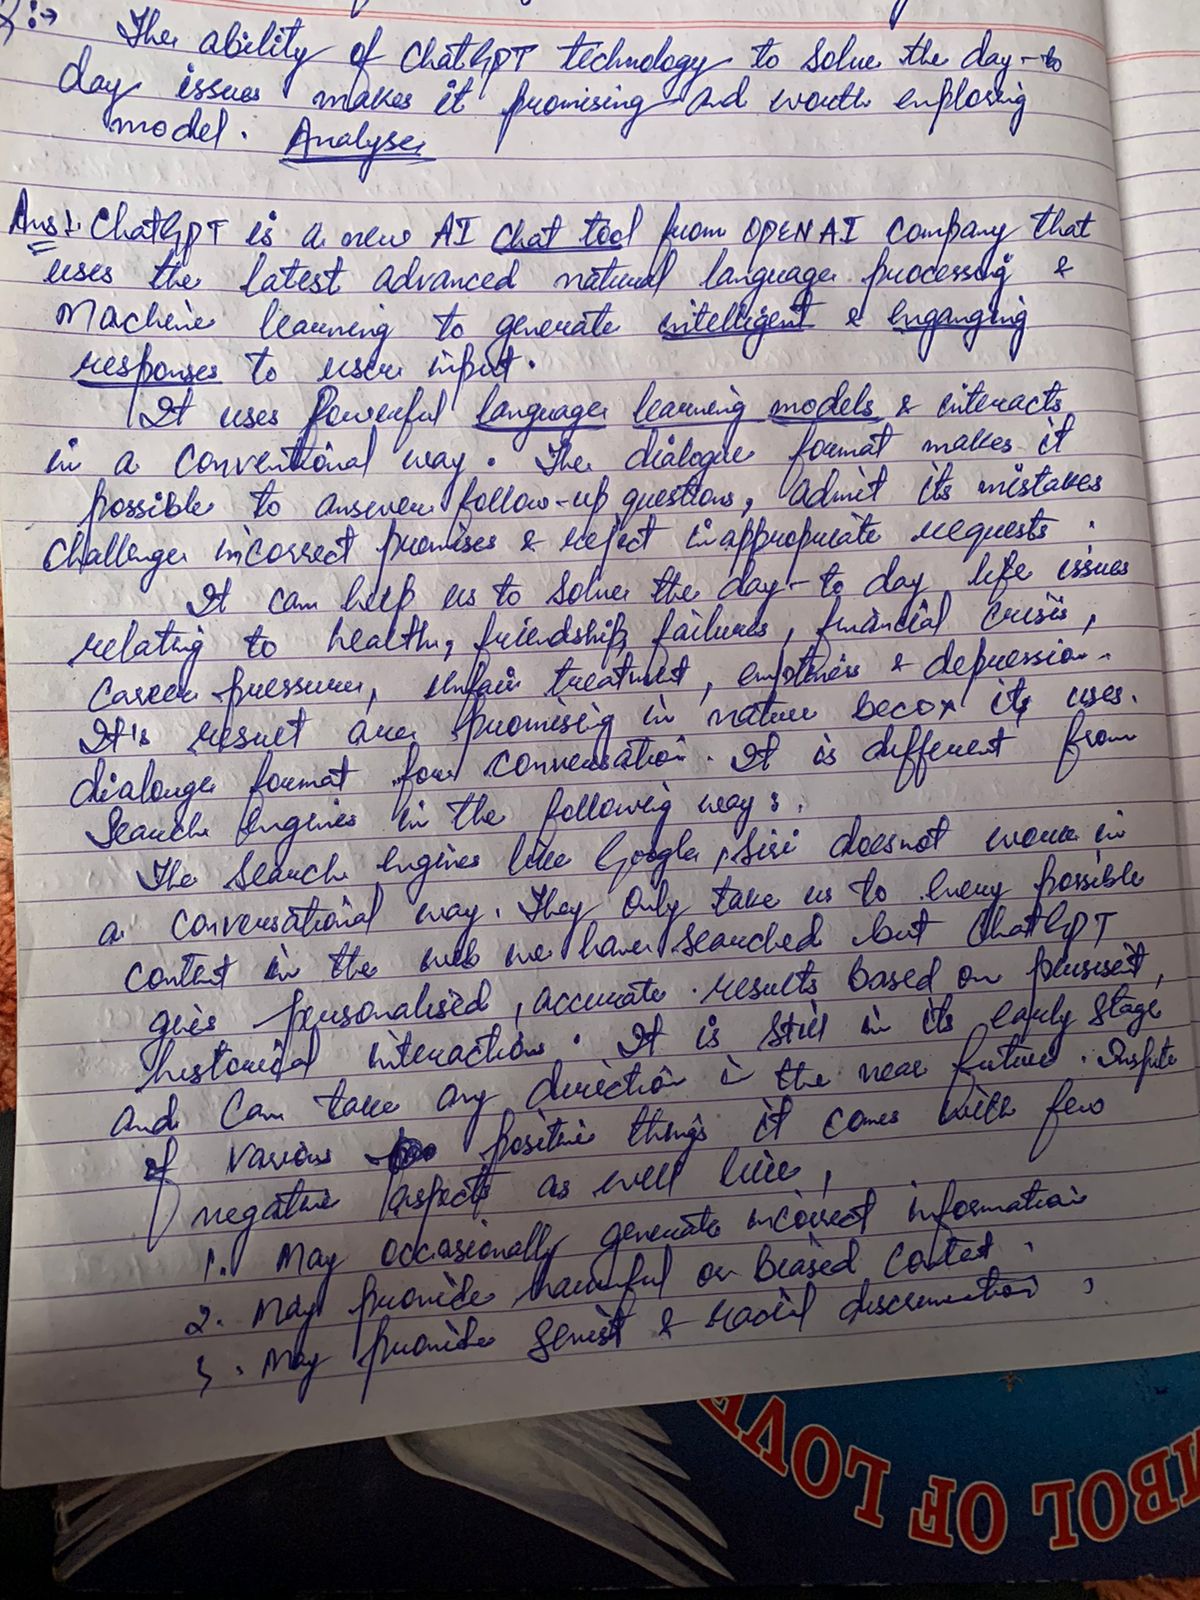 The ability of ChatGPT technology to solve the day-to
day issues makes it promising and worth exploring
model. Analyse
Ans:. ChatGPT is a new AI chat tool from OPENAI company that
uses the latest advanced natural language processing &
Machine learning to generate intelligent & enganging
responses to user input.
It uses Powerful language learning models & interacts
in a conventional way. The dialogue format makes it
possible to answer follow-up questions, admit its mistakes
challenge incorrect premises & reject inappropriate requests.
It can help us to solve the day-to day life issues
relating to health, friendship, failures, financial crisis,
career pressure, unfair treatment, emptiness & depression.
It's result are promising in nature it uses.
dialouge format for conversation. It is different from
Search Engines in the following way:.
The Search engines like Google, Siri doesnot work in
a conversational way. They Only take us to every possible
content in the web we have searched but ChatGPT
gives personalised, accurate results based on
historical interactions. It is still in its early stage
and Can take any direction in the near future. Inspite
of various positive things it comes with few
negative aspects as well like,
1. May occasionally generate incorrect information
2. May provide harmful or biased Contet.
3. May provide & racial
SYMBOL OF LOVE